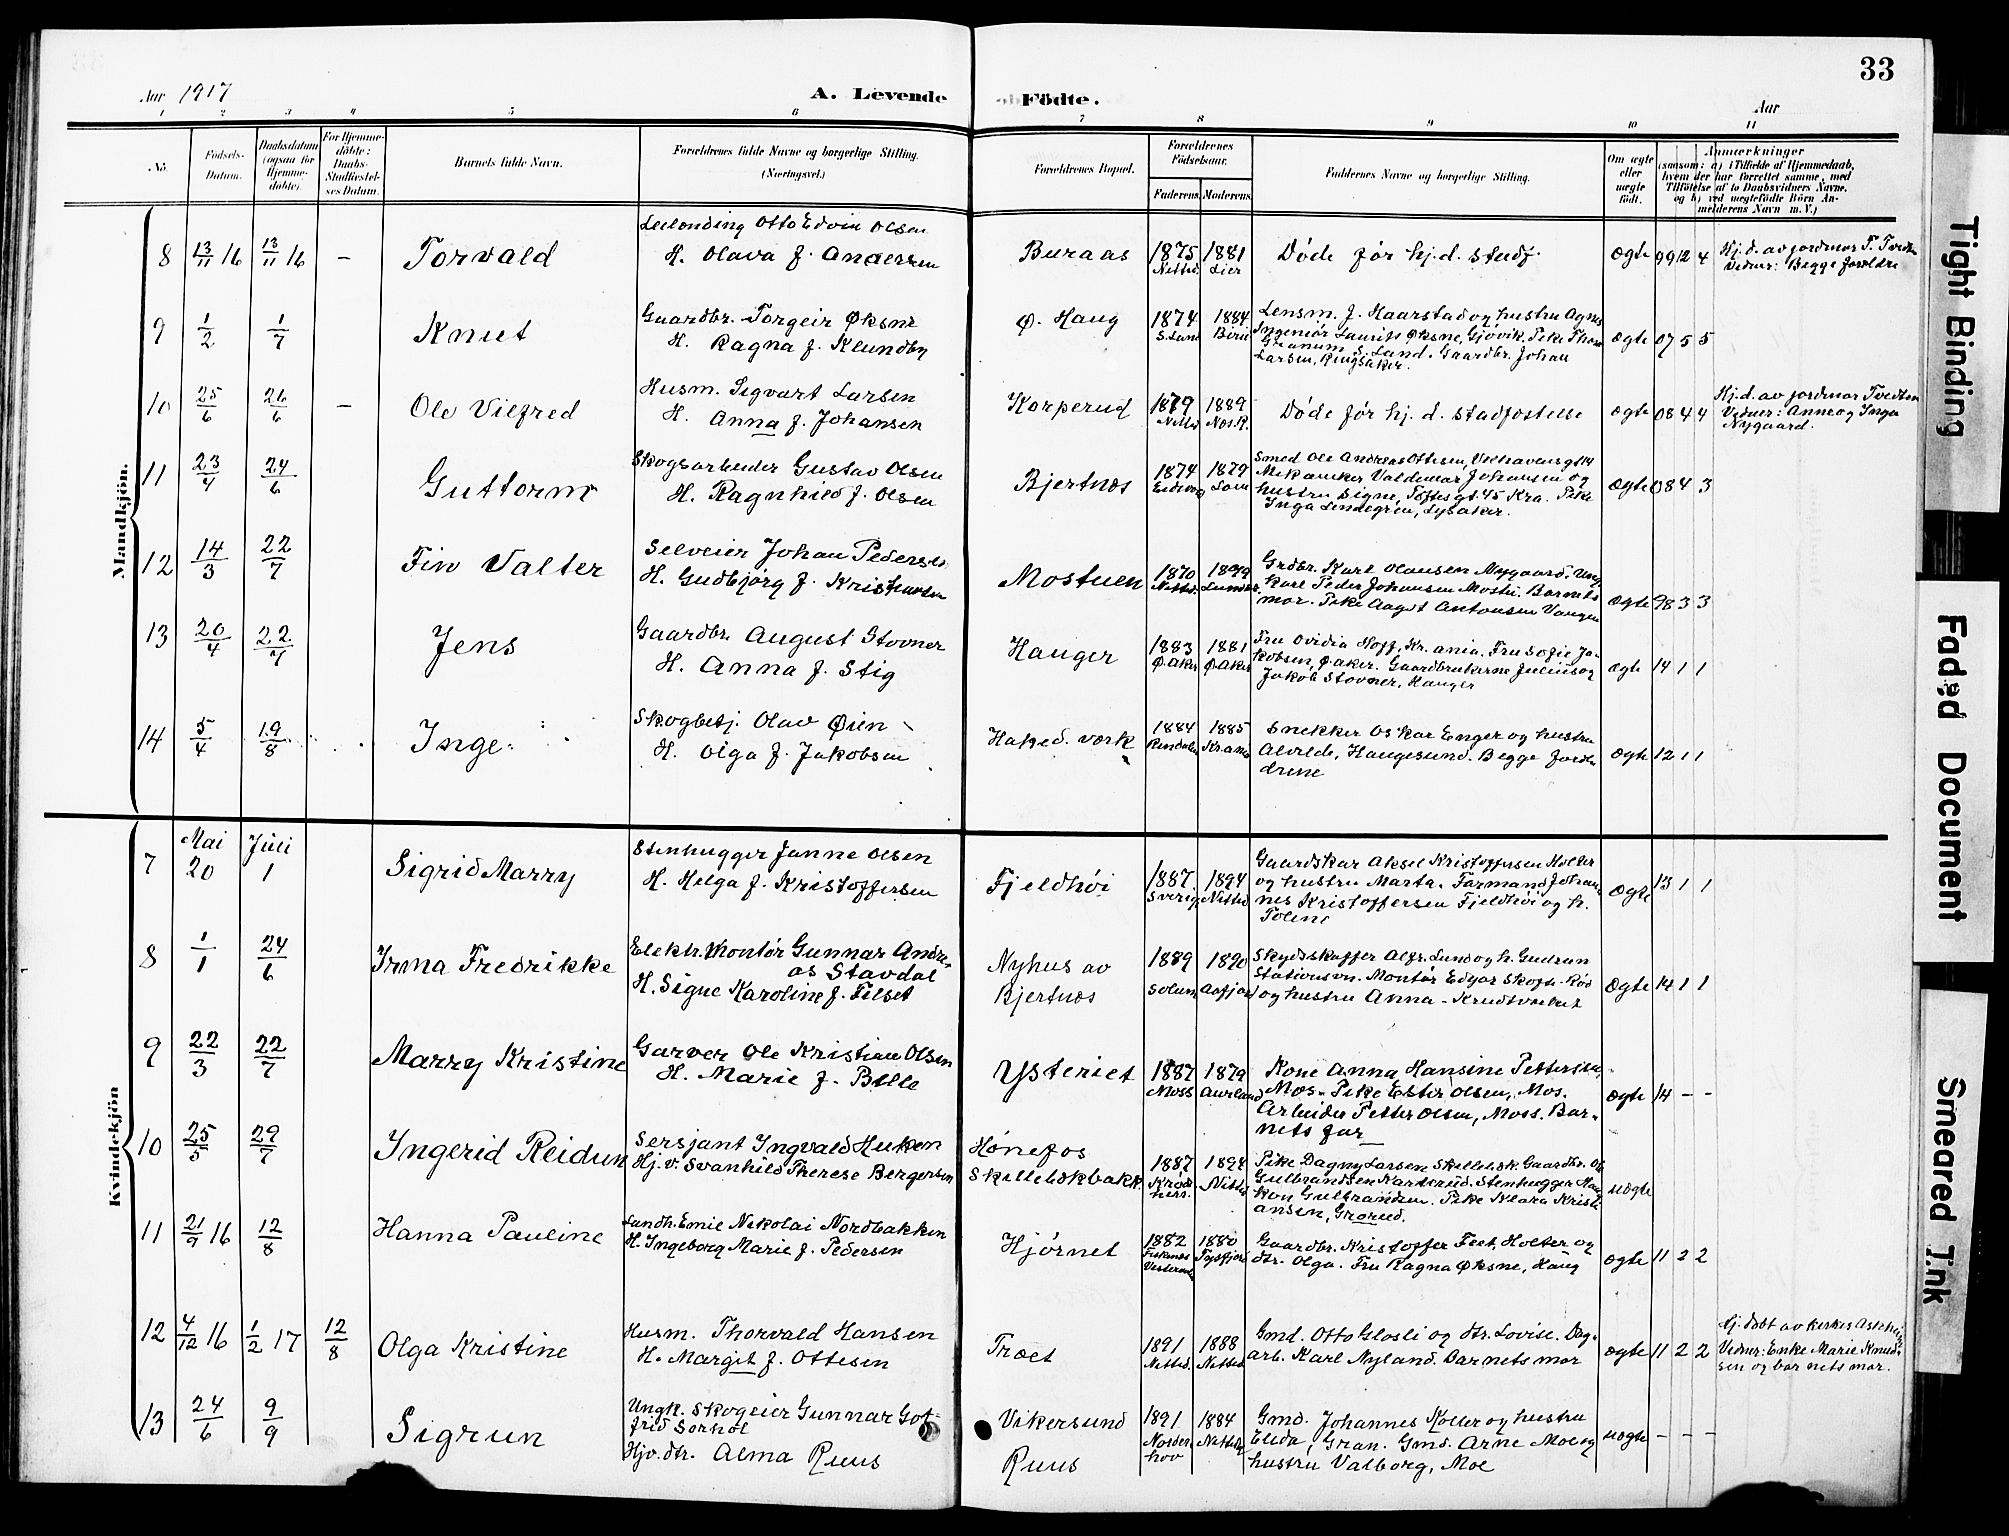 33
Aar 1917
A. Levende Födte.
Aar
1 2 3 4 5 6 7 8 9 10 11
No.
Födsels-
Datum.
Daabsdatum
(ogsaa for
Hjemme-
döbte).
For Hjemme-
döbte:
Daabs-
Stadfæstel-
ses Datum.
Barnets fulde Navn.
Forældrenes fulde Navne og borgerlige Stilling.
(Næringsvei.)
Forældrenes Bopæl.
Forældrenes
Födselsaar.
Faderens. Moderens.
Faddernes Navne og borgerlige Stilling.
Om ægte
eller
uægte
födt.
Anmærkninger
(saasom: a) i Tilfælde af Hjemmedaab,
hvem der har forrettet samme, med
Tilföielse af to Daabsvidners Navne.
og b) ved uægtefödte Börn An-
melderens Navn m. V.)
Mandkjön.
8 13/11 16 13/11 16 – Torvald
Leilending Otto Edvin Olsen
H. Olava f. Andersen
Buraas 1875 Nitted. 1881 Lier
Døde før hj.d. stadf.
Ægte 99 12 4
Hj. d. av jordmor T. Tvedten
Vidner: Begge foreldre
9 1/2 1/7 Knut
Gaardbr. Torgeir Øksne
H. Ragna f. Klundby
Ø. Haug 1874 S. Land 1884 Biri
Lensm. J. Kaarstad og hustru Agnes
Ingeniør Laurits Øksne, Gjövik. Pike Thora
Granum S. Land. Gaardbr. Johan
Larsen, Ringsaker.
Ægte 07 5 5
10 25/6 26/6 – Ole Vilfred
Husm. Sigvart Larsen
H. Anna f. Johansen
Korperud 1879 Nitted. 1889 Nes.R.
Døde før hj. d. stadfæstelse
Ægte 08 4 4
Hj. d. av jordmor Tvedten
Vidner: Anne og Inga
Nygaard.
11 23/4 24/6 Guttorm
Skogsarbeider Gustav Olsen
H. Ragnhild f. Olsen
Bjertnæs 1874 Eidsvog 1879 Lom
Smed Ole Andreas Ottesen, Velhavensgt 14
Mekaniker Valdemar Johansen og
hustru Signe, Toftesgt. 45 Kra. Pike
Inga Lindegren, Lysaker.
Ægte 08 4 3
12 14/3 22/7 Fin Valter
Selveier Johan Pedersen
H. Gudbjørg f. Kristiansen
Mostuen 1870 Nitted. 1879
Grdbr. Karl Olausen Nygaard. Ung-
karl Peder Johansen Mostu. Barnets
mor. Pike Aagot Antonsen Vangen
Ægte 98 3 3
13 20/4 22/7 Jens
Gaardbr. August Stovner
H. Anna f. Stig
Hauger 1883 Ø. Aker 1881 Ø. Aker
Fru Ovidia Hoff, Kr.ania. Fru Sofie Ja-
kobsen, Ø. aker. Gaardbrukerne Julius og
Jakob Stovner, Hauger
Ægte 14 1 1
14 5/4 19/8 Inge
Skogbetj. Olav Øien
H. Olga f. Jakobsen
Haked. værk 1884 Rendalen 1885 Kr.ania
Snekker Oskar Enger og hustru
Alvilde, Haugesund. Begge foreld-
drene
Ægte 12 1 1
Kvindekjön
7 Mai 20 Juli 1 Sigrid Marry
Stenhugger Janne Olsen
H. Helga f. Kristoffersen
Fjeldhöi 1887 Sverige 1894 Nitted
Gaardskar Aksel Kristoffersen Holter
og hustru Marta. Formand Johan-
nes Kristoffersen Fjeldhöi og h.
Toline
Ægte 13 1 1
8 1/1 24/6 Irma Fredrikke
Elektr. Montör Gunnar Andre-
as Stavdal
H. Signe Karoline f. Tilset
Nyhus av
Bjertnæs
1889 Solum 1890 Aafjord
Skydsskaffer Alfr. Lund og h. Gudrun
Stationsvn. Montör Edgar Skogh-Röd
og hustru Anna - Krudtværket
Ægte 14 1 1
9 22/3 22/7 Marry Kristine
Garver Ole Kristian Olsen
H. Marie f. Bille
Ysteriet 1887 Moss 1879 Aurland
Kone Anna Hansine Pettersen,
Mos. Pike Ester Olsen, Mos.
Arbeider Petter Olsen, Moss. Bar-
nets far
Ægte 14 – –
10 25/5 29/7 Ingerid Reidun
Sersjant Ingvald Huken
Hj.v. Svanhild Therese Bergersen
Hönefos
Skillebækbakk.
1887 Kröd-
herr. 1894 Nitted
Pike Dagny Larsen Skillebæk. Gaardbr. Ole
Gulbrandsen Karterud. Stenhugger Haa-
kon Gulbrandsen. Pike Klara Kristi-
ansen, Grorud.
uægte
11 21/9 16 12/8 Hanna Pauline
Landh. Emil Nikolai Nordbakken
H. Ingeborg Marie f. Pedersen
Hjørnet 1882 1880 Tysfjord
Gaardbr. Kristoffer Feet, Holter og
dtr. Olga. Fru Ragna Øksne, Haug
Ægte 11 2 2
12 4/12 16 1/2 17 12/8 Olga Kristine
Husm. Thorvald Hansen
H. Margit f. Ottesen
Træet 1891 Nitted. 1888 Nitted.
Gmd. Otto Glosli og dtr. Lovise. Dag-
arb. Karl Nyland. Barnets mor
Ægte 11 2 2
Hj. døbt av kirkes.
Vidner: Enke Marie Knud-
sen og barnets mor.
13 24/6 9/9 Sigrun
Ungk. Skogeier Gunnar Got-
fred Sorhol
Hjv. dtr. Alma Ruus
Vikersund
Ruus
1891 Norder-
hov 1884 Nitted.
Gmd. Johannes Koller og hustru
Elida, Gran. Gmd. Arne Moe og
hustru Valborg, Moe
uægte – – –
Tight Binding
Faded Document
Smeared Ink